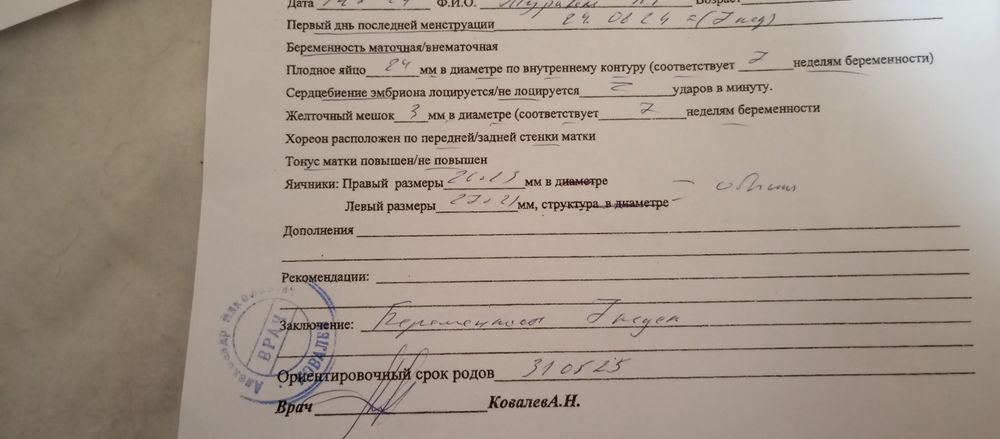 Дата Ф.И.О. Возраст
Первый день последней менструации 24.0824 = (7нед)
Беременность маточная/внематочная
Плодное яйцо 24 мм в диаметре по внутреннему контуру (соответствует 7 неделям беременности)
Сердцебиение эмбриона лоцируется/не лоцируется ударов в минуту.
Желточный мешок 3 мм в диаметре (соответствует 7 неделям беременности
Хореон расположен по передней/задней стенки матки
Тонус матки повышен/не повышен
Яичники: Правый размеры мм в диаметре
Левый размеры 27×21 мм, структура в диаметре
Дополнения
Рекомендации:
Заключение: Беременность 7 недель
Ориентировочный срок родов 310525
Врач КовалевА.Н.
Александр Николаевич
ВРАЧ
КОВАЛЕВ